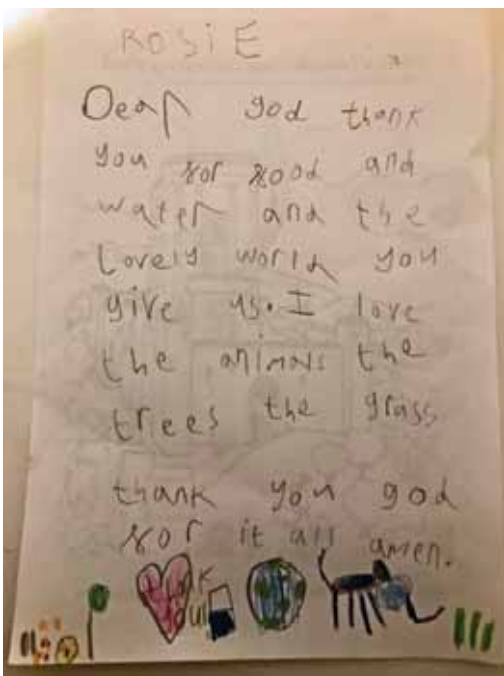 ROSiE
Dear god thank
you for food and
water and the
Lovely world you
give us. I love
the animals the
trees the grass
thank you god
for it all amen.